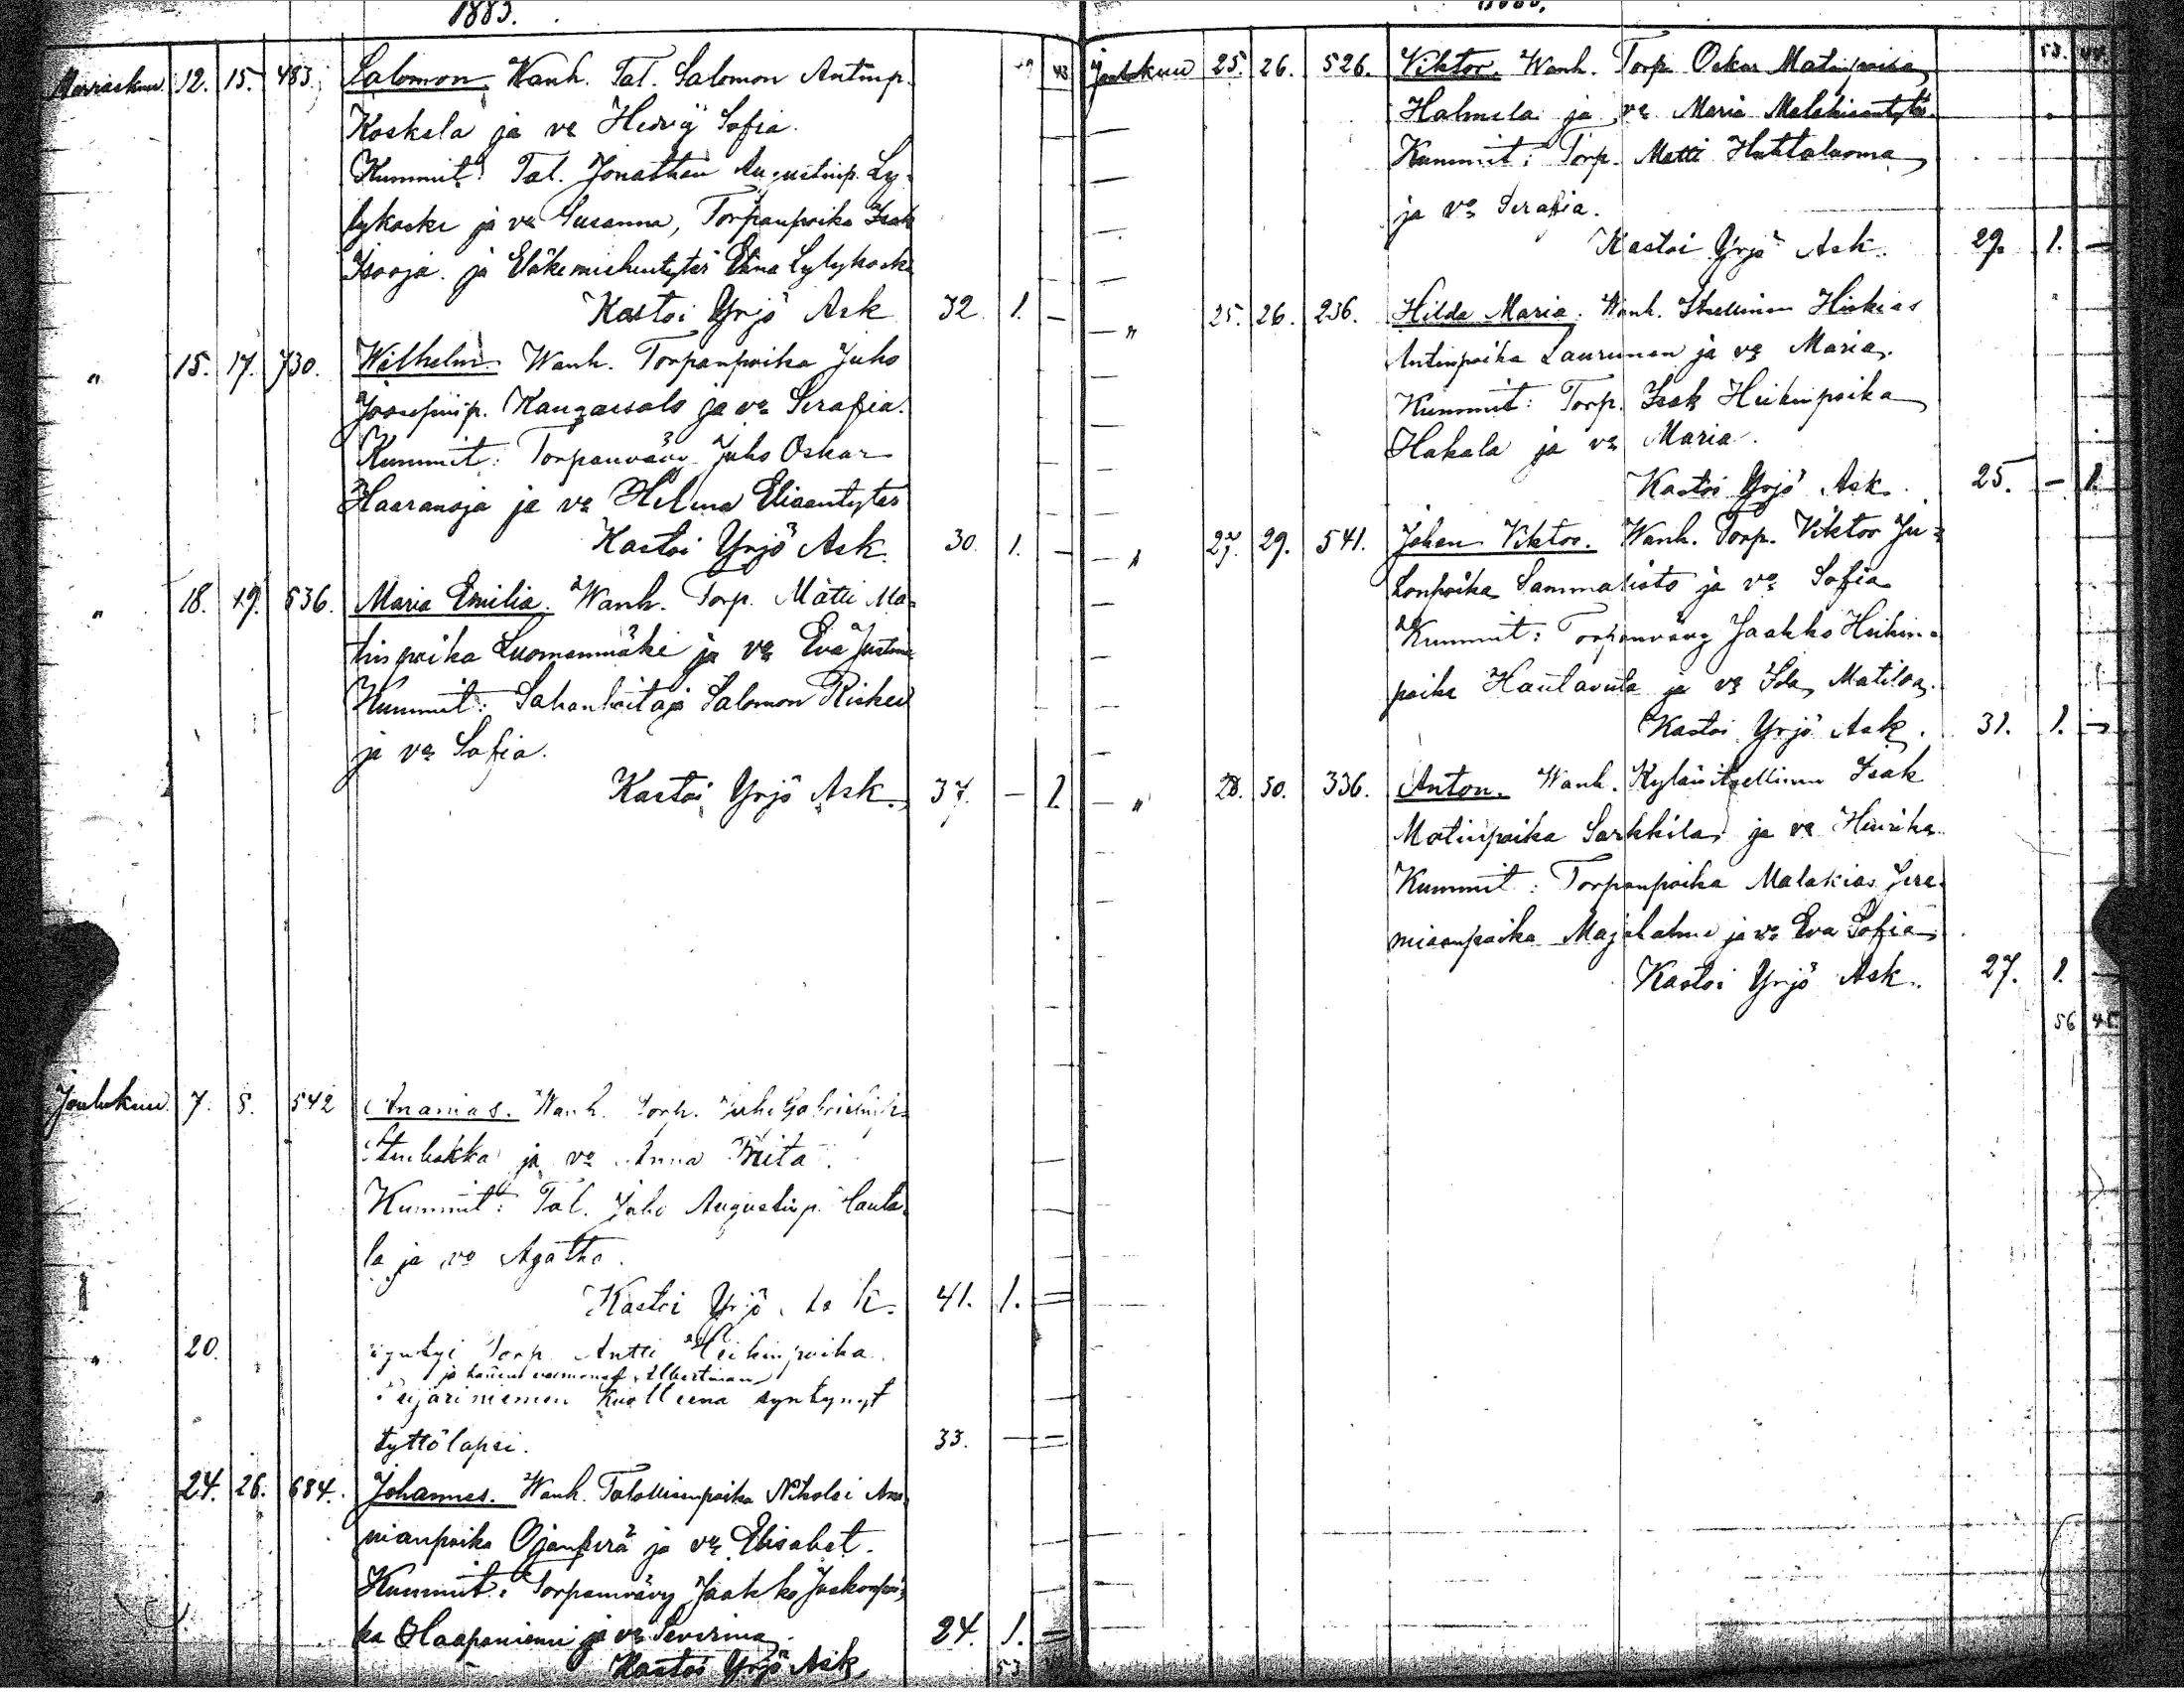 1883.
49 43
Marraskuu 12. 15. 483. Salomon. Wanh. Tal. Salomon Antinp.
Koskela ja vo Hedvig Sofia.
Kummit: Tal. Jonathan Augustinp. Ly-
lykoski ja vo Susanna, Torpanpoika Isak
Isooja ja Eläkemiehentytär Elina Lylykoski
Kastoi Yrjö Ask 32. 1. —
" 15. 17. 730. Wilhelm. Wanh. Torpanpoika Juho
Josefinp. Kangassalo ja vo Serafia.
Kummit: Torpanvävy Juho Oskar
Haaranoja ja vo Helena Eliaantytär
Kastoi Yrjö Ask. 30. 1. —
" 18. 19. 536. Maria Emilia. Wanh. Torp. Matti Ma-
tinpoika Luomanmäki ja vo Eva Justina
Kummit: Sahanhoitaja Salomon Risku
ja vo Sofia.
Kastoi Yrjö Ask. 37. — 1.
Joulukuu 7. 8. 542 Ananias. Wanh. Torp. Juho Gabrielinp.
ja vo Anna Brita.
Kummit: Tal. Juho Augustinp. Lauta-
la ja vo Agatha.
Kastoi Yrjö Ask. 41. 1. —
" 20. syntyi Torp. Antti Heikinpoika
ja hänen vaimonsa Albertinan
Peijariniemen kuolleena syntynyt
tyttölapsi. 33. — —
" 24. 26. 684. Johannes. Wanh. Talollisenpoika Nikolai Ana-
nianpoika Ojanperä ja vo Elisabet.
Kummit: Torpanvävy Jaakko Jaakonpoi-
ka Haapaniemi ja vo Severina
Kastoi Yrjö Ask 24. 1. —
53
53. 44.
Joulukuu 25. 26. 526. Viktor. Wanh. Torp. Oskar Matinpoika
Halmela ja vo Maria Malakiaantytär.
Kummit: Torp. Matti Huhtaluoma
ja vo Serafia.
Kastoi Yrjö Ask. 29. 1. —
" 25. 26. 236. Hilda Maria. Wanh. Itsellinen Hiskias
Antinpoika Laurunen ja vo Maria.
Kummit: Torp. Isak Heikinpoika
Hakala ja vo Maria.
Kastoi Yrjö Ask. 25. — 1.
" 27. 29. 541. Johan Viktor. Wanh. Torp. Viktor Ju-
honpoika Sammalisto ja vo Sofia
Kummit: Torpanvävy Jaakko Heikin-
poika Hautaviita ja vo Ida Matilda.
Kastoi Yrjö Ask. 31. 1. —
" 28. 30. 336. Anton. Wanh. Kylänitsellinen Isak
Matinpoika Sarkkila ja vo Henrika.
Kummit: Torpanpoika Malakias Jere-
miaanpoika Majalahme ja vo Eva Sofia
Kastoi Yrjö Ask. 27. 1. —
56 45